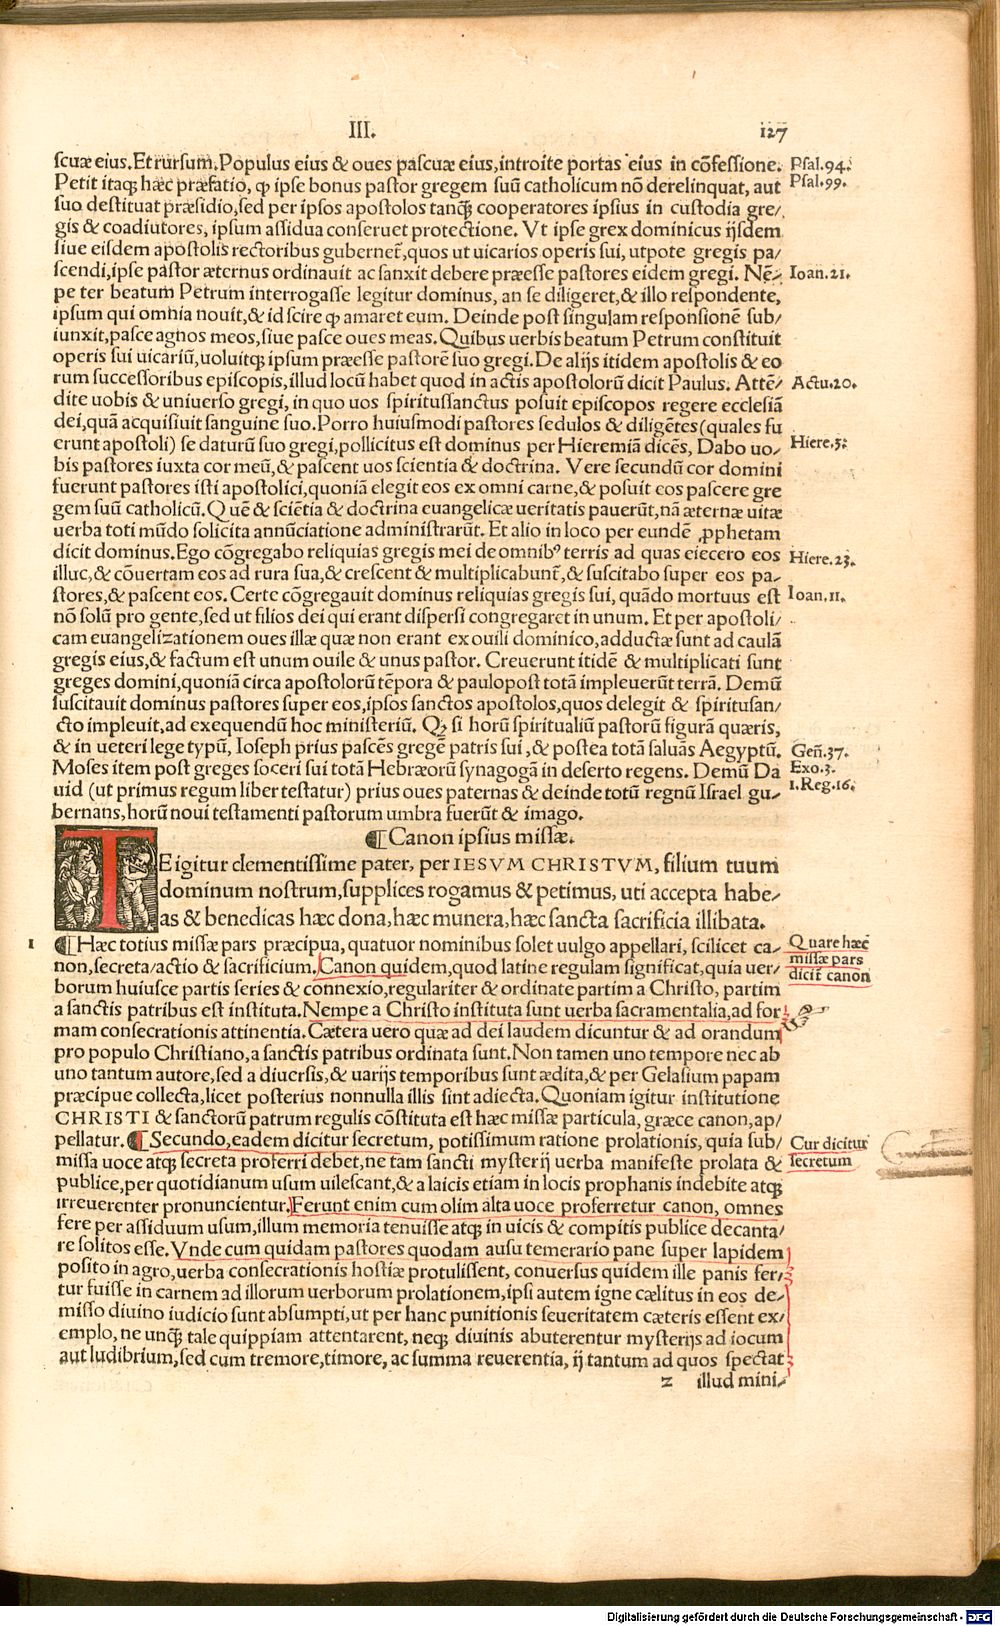 III. 127
scuæ eius. Et rursum. Populus eius & oues pascuæ eius, introite portas eius in cõfessione. Psal. 94.
Petit itaq; hæc præfatio, ꝙ ipse bonus pastor gregem suũ catholicum nõ derelinquat, aut Psal. 99.
suo destituat præsidio, sed per ipsos apostolos tanq̃ cooperatores ipsius in custodia gre/
gis & coadiutores, ipsum assidua conseruet protectione. Vt ipse grex dominicus ijsdem
siue eisdem apostolis rectoribus gubernet̃, quos ut uicarios operis sui, utpote gregis pa/
scendi, ipse pastor æternus ordinauit ac sanxit debere præesse pastores eidem gregi. Nẽ/ Ioan. 21.
pe ter beatum Petrum interrogasse legitur dominus, an se diligeret, & illo respondente,
ipsum qui omnia nouit, & id scire ꝙ amaret eum. Deinde post singulam responsionẽ sub/
iunxit, pasce agnos meos, siue pasce oues meas. Quibus uerbis beatum Petrum constituit
operis sui uicariũ, uoluitq; ipsum præesse pastorẽ suo gregi. De alijs itidem apostolis & eo
rum successoribus episcopis, illud locũ habet quod in actis apostolorũ dicit Paulus. Attẽ/ Actu. 20.
dite uobis & uniuerso gregi, in quo uos spiritussanctus posuit episcopos regere ecclesiã
dei, quã acquisiuit sanguine suo. Porro huiusmodi pastores sedulos & diligẽtes (quales fu
erunt apostoli) se daturũ suo gregi, pollicitus est dominus per Hieremiã dicẽs, Dabo uo/ Hiere. 3.
bis pastores iuxta cor meũ, & pascent uos scientia & doctrina. Vere secundũ cor domini
fuerunt pastores isti apostolici, quoniã elegit eos ex omni carne, & posuit eos pascere gre
gem suũ catholicũ. Quẽ & sciẽtia & doctrina euangelicæ ueritatis pauerũt, nã æternæ uitæ
uerba toti mũdo solicita annũciatione administrarũt. Et alio in loco per eundẽ ꝓphetam
dicit dominus. Ego cõgregabo reliquias gregis mei de omnibꝰ terris ad quas eiecero eos Hiere. 23.
illuc, & cõuertam eos ad rura sua, & crescent & multiplicabunt̃, & suscitabo super eos pa/
stores, & pascent eos. Certe cõgregauit dominus reliquias gregis sui, quãdo mortuus est Ioan. 11.
nõ solũ pro gente, sed ut filios dei qui erant dispersi congregaret in unum. Et per apostoli/
cam euangelizationem oues illæ quæ non erant ex ouili dominico, adductæ sunt ad caulã
gregis eius, & factum est unum ouile & unus pastor. Creuerunt itidẽ & multiplicati sunt
greges domini, quoniã circa apostolorũ tẽpora & paulopost totã impleuerũt terrã. Demũ
suscitauit dominus pastores super eos, ipsos sanctos apostolos, quos delegit & spiritusan/
cto impleuit, ad exequendũ hoc ministeriũ. Qꝫ si horũ spiritualiũ pastorũ figurã quæris,
& in ueteri lege typũ, Ioseph prius pascẽs gregẽ patris sui, & postea totã saluãs Aegyptũ. Geñ. 37.
Moses item post greges soceri sui totã Hebræorũ synagogã in deserto regens. Demũ Da Exo. 3.
uid (ut primus regum liber testatur) prius oues paternas & deinde totũ regnũ Israel gu/ 1. Reg. 16.
bernans, horũ noui testamenti pastorum umbra fuerũt & imago.
¶ Canon ipsius missæ.
TE igitur clementissime pater, per IESVM CHRISTVM, filium tuum
dominum nostrum, supplices rogamus & petimus, uti accepta habe/
as & benedicas hæc dona, hæc munera, hæc sancta sacrificia illibata.
1 ¶ Hæc totius missæ pars præcipua, quatuor nominibus solet uulgo appellari, scilicet ca/ Quare hæc
non, secreta/actio & sacrificium. Canon quidem, quod latine regulam significat, quia uer/ missæ pars
borum huiusce partis series & connexio, regulariter & ordinate partim a Christo, partim dicit̃ canon
a sanctis patribus est instituta. Nempe a Christo instituta sunt uerba sacramentalia, ad for
mam consecrationis attinentia. Cætera uero quæ ad dei laudem dicuntur & ad orandum
pro populo Christiano, a sanctis patribus ordinata sunt. Non tamen uno tempore nec ab
uno tantum autore, sed a diuersis, & uarijs temporibus sunt ædita, & per Gelasium papam
præcipue collecta, licet posterius nonnulla illis sint adiecta. Quoniam igitur institutione
CHRISTI & sanctorũ patrum regulis cõstituta est hæc missæ particula, græce canon, ap/
pellatur. ¶ Secundo, eadem dicitur secretum, potissimum ratione prolationis, quia sub/ Cur dicitur
missa uoce atq; secreta proferri debet, ne tam sancti mysterij uerba manifeste prolata & secretum
publice, per quotidianum usum uilescant, & a laicis etiam in locis prophanis indebite atq;
irreuerenter pronuncientur. Ferunt enim cum olim alta uoce proferretur canon, omnes
fere per assiduum usum, illum memoria tenuisse atq; in uicis & compitis publice decanta/
re solitos esse. Vnde cum quidam pastores quodam ausu temerario pane super lapidem
posito in agro, uerba consecrationis hostiæ protulissent, conuersus quidem ille panis fer/
tur fuisse in carnem ad illorum uerborum prolationem, ipsi autem igne cælitus in eos de/
misso diuino iudicio sunt absumpti, ut per hanc punitionis seueritatem cæteris essent ex/
emplo, ne unq̃ tale quippiam attentarent, neq; diuinis abuterentur mysterijs ad iocum
aut ludibrium, sed cum tremore, timore, ac summa reuerentia, ij tantum ad quos spectat
z illud mini/
Digitalisierung gefördert durch die Deutsche Forschungsgemeinschaft - DFG